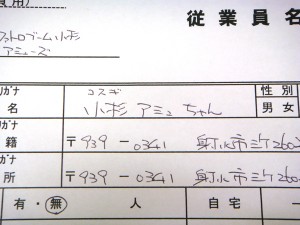 従業員名
ファトロブーム小杉
アミューズ
リガナ コスギ 性別
名 小杉 アミュ ちゃん 男 女
リガナ
籍 〒939-0341 射水市三ケ2602
ガナ
所 〒939-0341 射水市三ケ2602
有・無 人 自宅